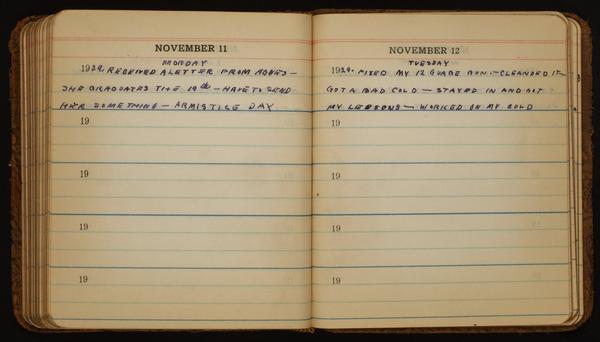 NOVEMBER 11
MONDAY
1929. RECEIVED A LETTER FROM AGNES —
SHE GRADUATES THE 19th — HAVE TO SEND
HER SOMETHING — ARMISTICE DAY
19
19
19
19
NOVEMBER 12
TUESDAY
1929. FIXED MY 12 GUAGE GUN. — CLEANDED IT —
GOT A BAD COLD — STAYED IN AND GOT
MY LESSONS — WORKED ON MY COLD
19
19
19
19